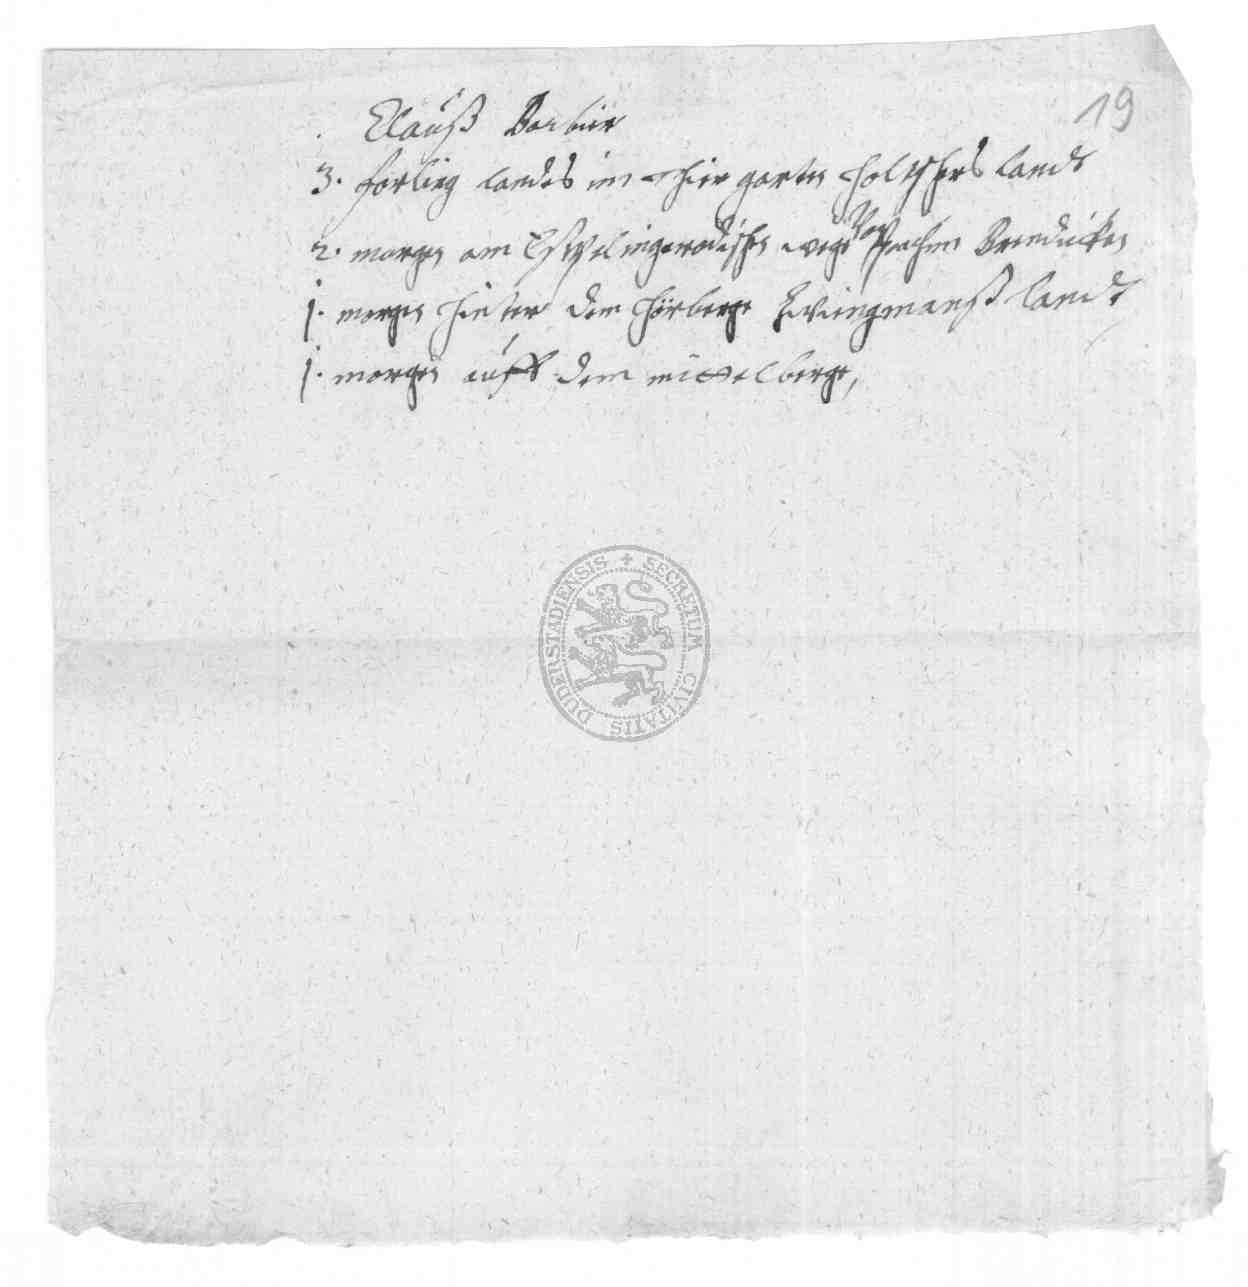 19
Clauß Barbier
3. forling landes im thier garten holtzhers landt
2. morgen am Esplingerodischen wege von Jochim Brendicken
1. morgen hinter dem hörberge Zwingmanß landt
1. morgen auff dem mittelberge,
SECRETUM CIVITATIS DUDERSTADIENSIS